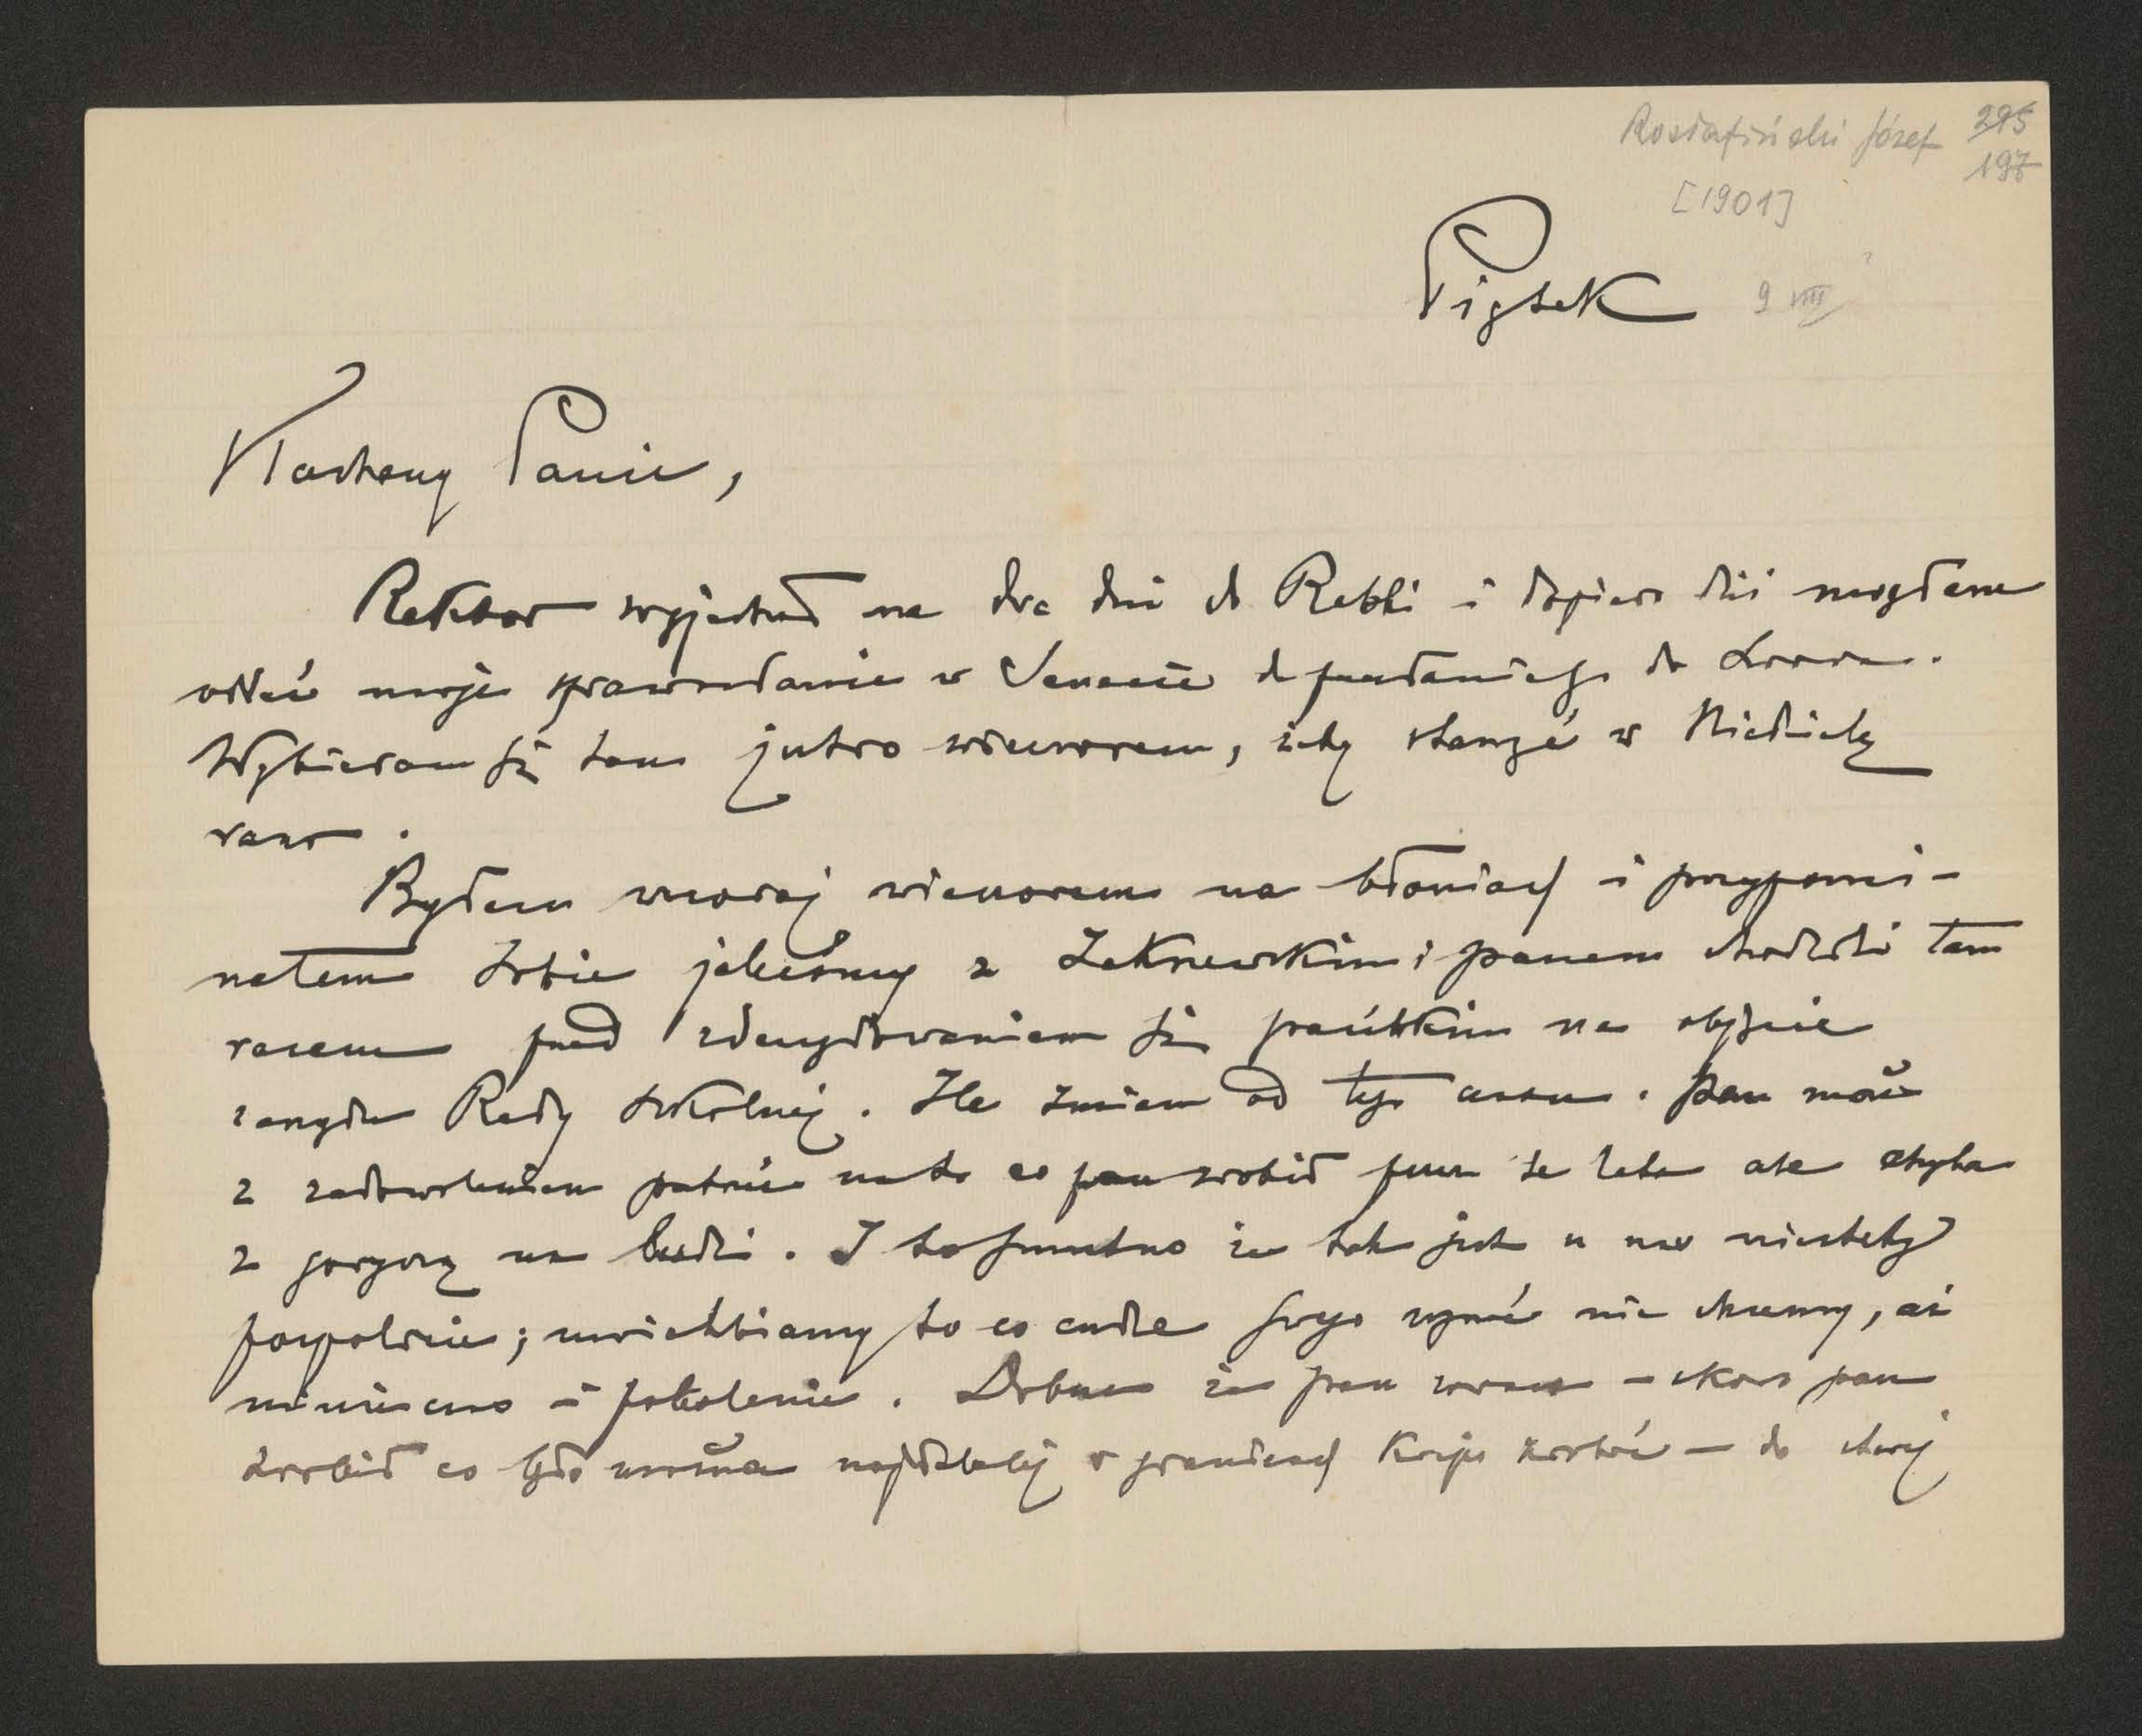 Rostafiński Józef 295
197
[1901]
Piątek 9 VIII ?
Kochany Panie,
Rektor wyjechał na dwa dni do Rabki i dopiero dziś mogłem
oddać moje sprawozdanie w Senacie do Lwowa.
Wybieram się tam jutro wieczorem, żeby stanąć w Niedzielę
rano.
Byłem wczoraj wieczorem na błoniach i przypomi-
nałem sobie jakeśmy z Zakrzewskim i panem chodzili tam
razem przed zdecydowaniem się pańskim na objęcie
zarządu Rady szkolnej. Ile zmian od tego czasu. Pan może
z zadowoleniem patrzeć na to co pan zrobił przez te lata ale chyba
z goryczą na ludzi. I to smutno że tak jest u nas niestety
pospolicie; uwielbiamy to co cudze swego uznać nie chcemy, aż
minie czas i pokolenie. Dobrze że pan wraca – skoro pan
zrobił co było można najdalej w granicach kraju zrobić – do